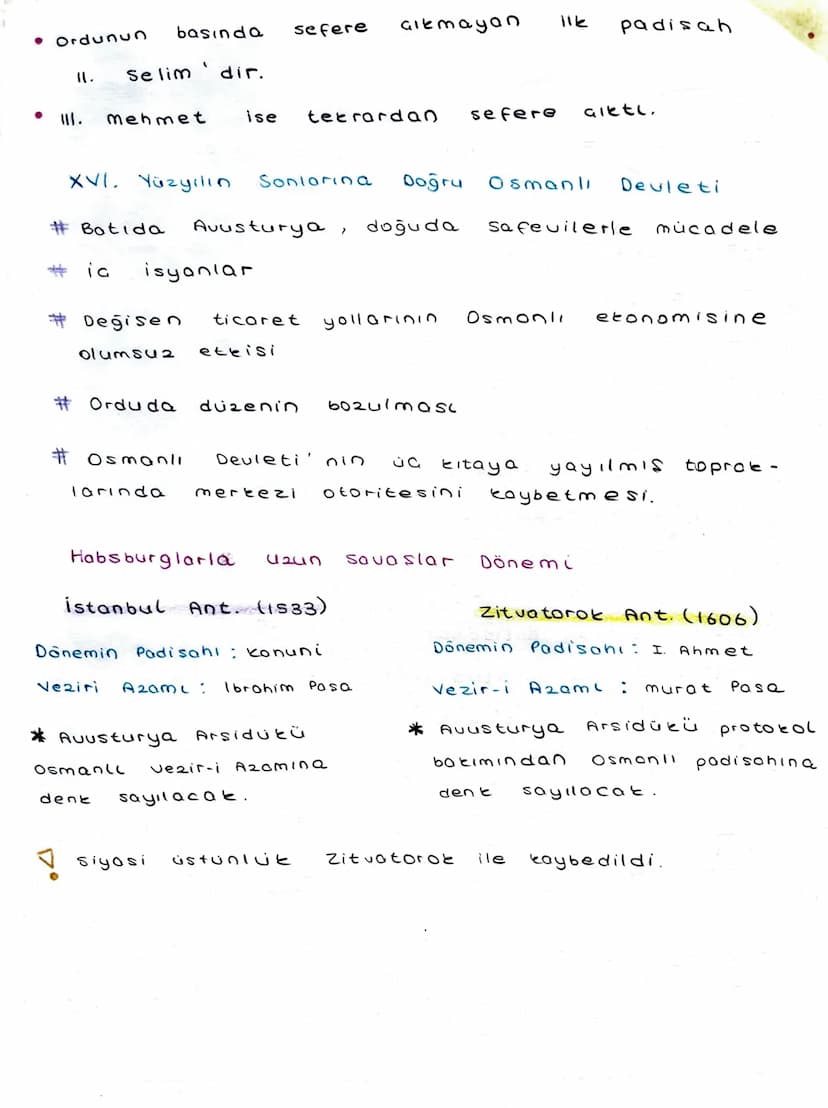 • Ordunun basında sefere cıkmayan ilk padisah
II. Selim'dir.
• III. mehmet ise tekrardan sefere cıktı.
XVI. Yüzyılın Sonlarına Doğru Osmanlı Devleti
# Batıda Avusturya, doğuda safevilerle mücadele
# ic isyanlar
# Değisen ticaret yollarının Osmanlı ekonomisine
olumsuz etkisi
# Orduda düzenin bozulması
# Osmanlı Devleti'nin üc kıtaya yayılmıs toprak-
larında merkezi otoritesini kaybetmesi.
Habsburglarla uzun savaslar Dönemi
İstanbul Ant. (1533)
Dönemin Padisahı : kanuni
Veziri Azamı : Ibrahim Pasa
* Avusturya Arsidükü
Osmanlı vezir-i Azamına
denk sayılacak.
Zitvatorok Ant. (1606)
Dönemin Padisahı : I. Ahmet
Vezir-i Azamı : murat Pasa
* Avusturya Arsidükü protokol
bakımından Osmanlı padisahına
denk sayılacak.
! siyasi üstünlük Zitvatorok ile kaybedildi.